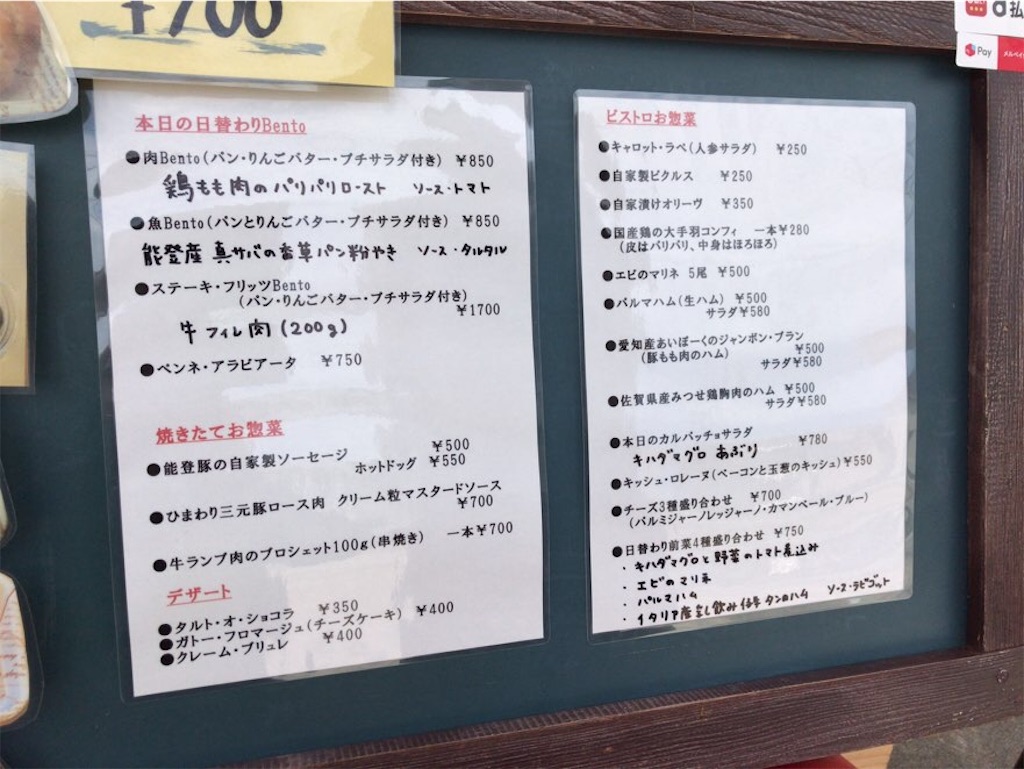 ¥700
本日の日替わりBento
●肉Bento(パン・りんごバター・プチサラダ付き) ¥850
鶏もも肉のパリパリロースト ソース・トマト
●魚Bento(パンとりんごバター・プチサラダ付き) ¥850
能登産 真サバの香草パン粉やき ソース・タルタル
●ステーキ・フリッツBento
(パン・りんごバター・プチサラダ付き)
¥1700
牛フィレ肉(200g)
●ペンネ・アラビアータ ¥750
焼きたてお惣菜
●能登豚の自家製ソーセージ ¥500
ホットドッグ ¥550
●ひまわり三元豚ロース肉 クリーム粒マスタードソース
¥700
●牛ランプ肉のブロシェット100g(串焼き) 一本¥700
デザート
●タルト・オ・ショコラ ¥350
●ガトー・フロマージュ(チーズケーキ) ¥400
●クレーム・ブリュレ ¥400
ビストロお惣菜
●キャロット・ラペ(人参サラダ) ¥250
●自家製ピクルス ¥250
●自家漬けオリーヴ ¥350
●国産鶏の大手羽コンフィ 一本¥280
(皮はパリパリ、中身はほろほろ)
●エビのマリネ 5尾 ¥500
●パルマハム(生ハム) ¥500
サラダ¥580
●愛知産あいぽーくのジャンボン・ブラン
(豚もも肉のハム) ¥500
サラダ¥580
●佐賀県産みつせ鶏胸肉のハム ¥500
サラダ¥580
●本日のカルパッチョサラダ ¥780
キハダマグロ あぶり
●キッシュ・ロレーヌ(ベーコンと玉葱のキッシュ)¥550
●チーズ3種盛り合わせ ¥700
(パルミジャーノレッジャーノ・カマンベール・ブルー)
●日替わり前菜4種盛り合わせ ¥750
・キハダマグロと野菜のトマト煮込み
・エビのマリネ
・パルマハム
・イタリア産 タンのハム ソース・ラビゴット
d払
Pay
メルペイ